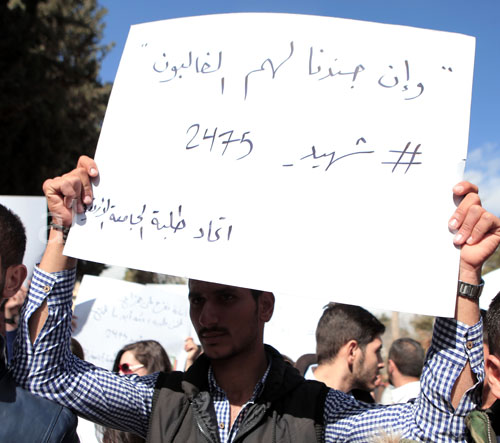 "وإن جندنا لهم الغالبون"
# شهيد_2475
اتحاد طلبة الجامعة الأردنية
2475